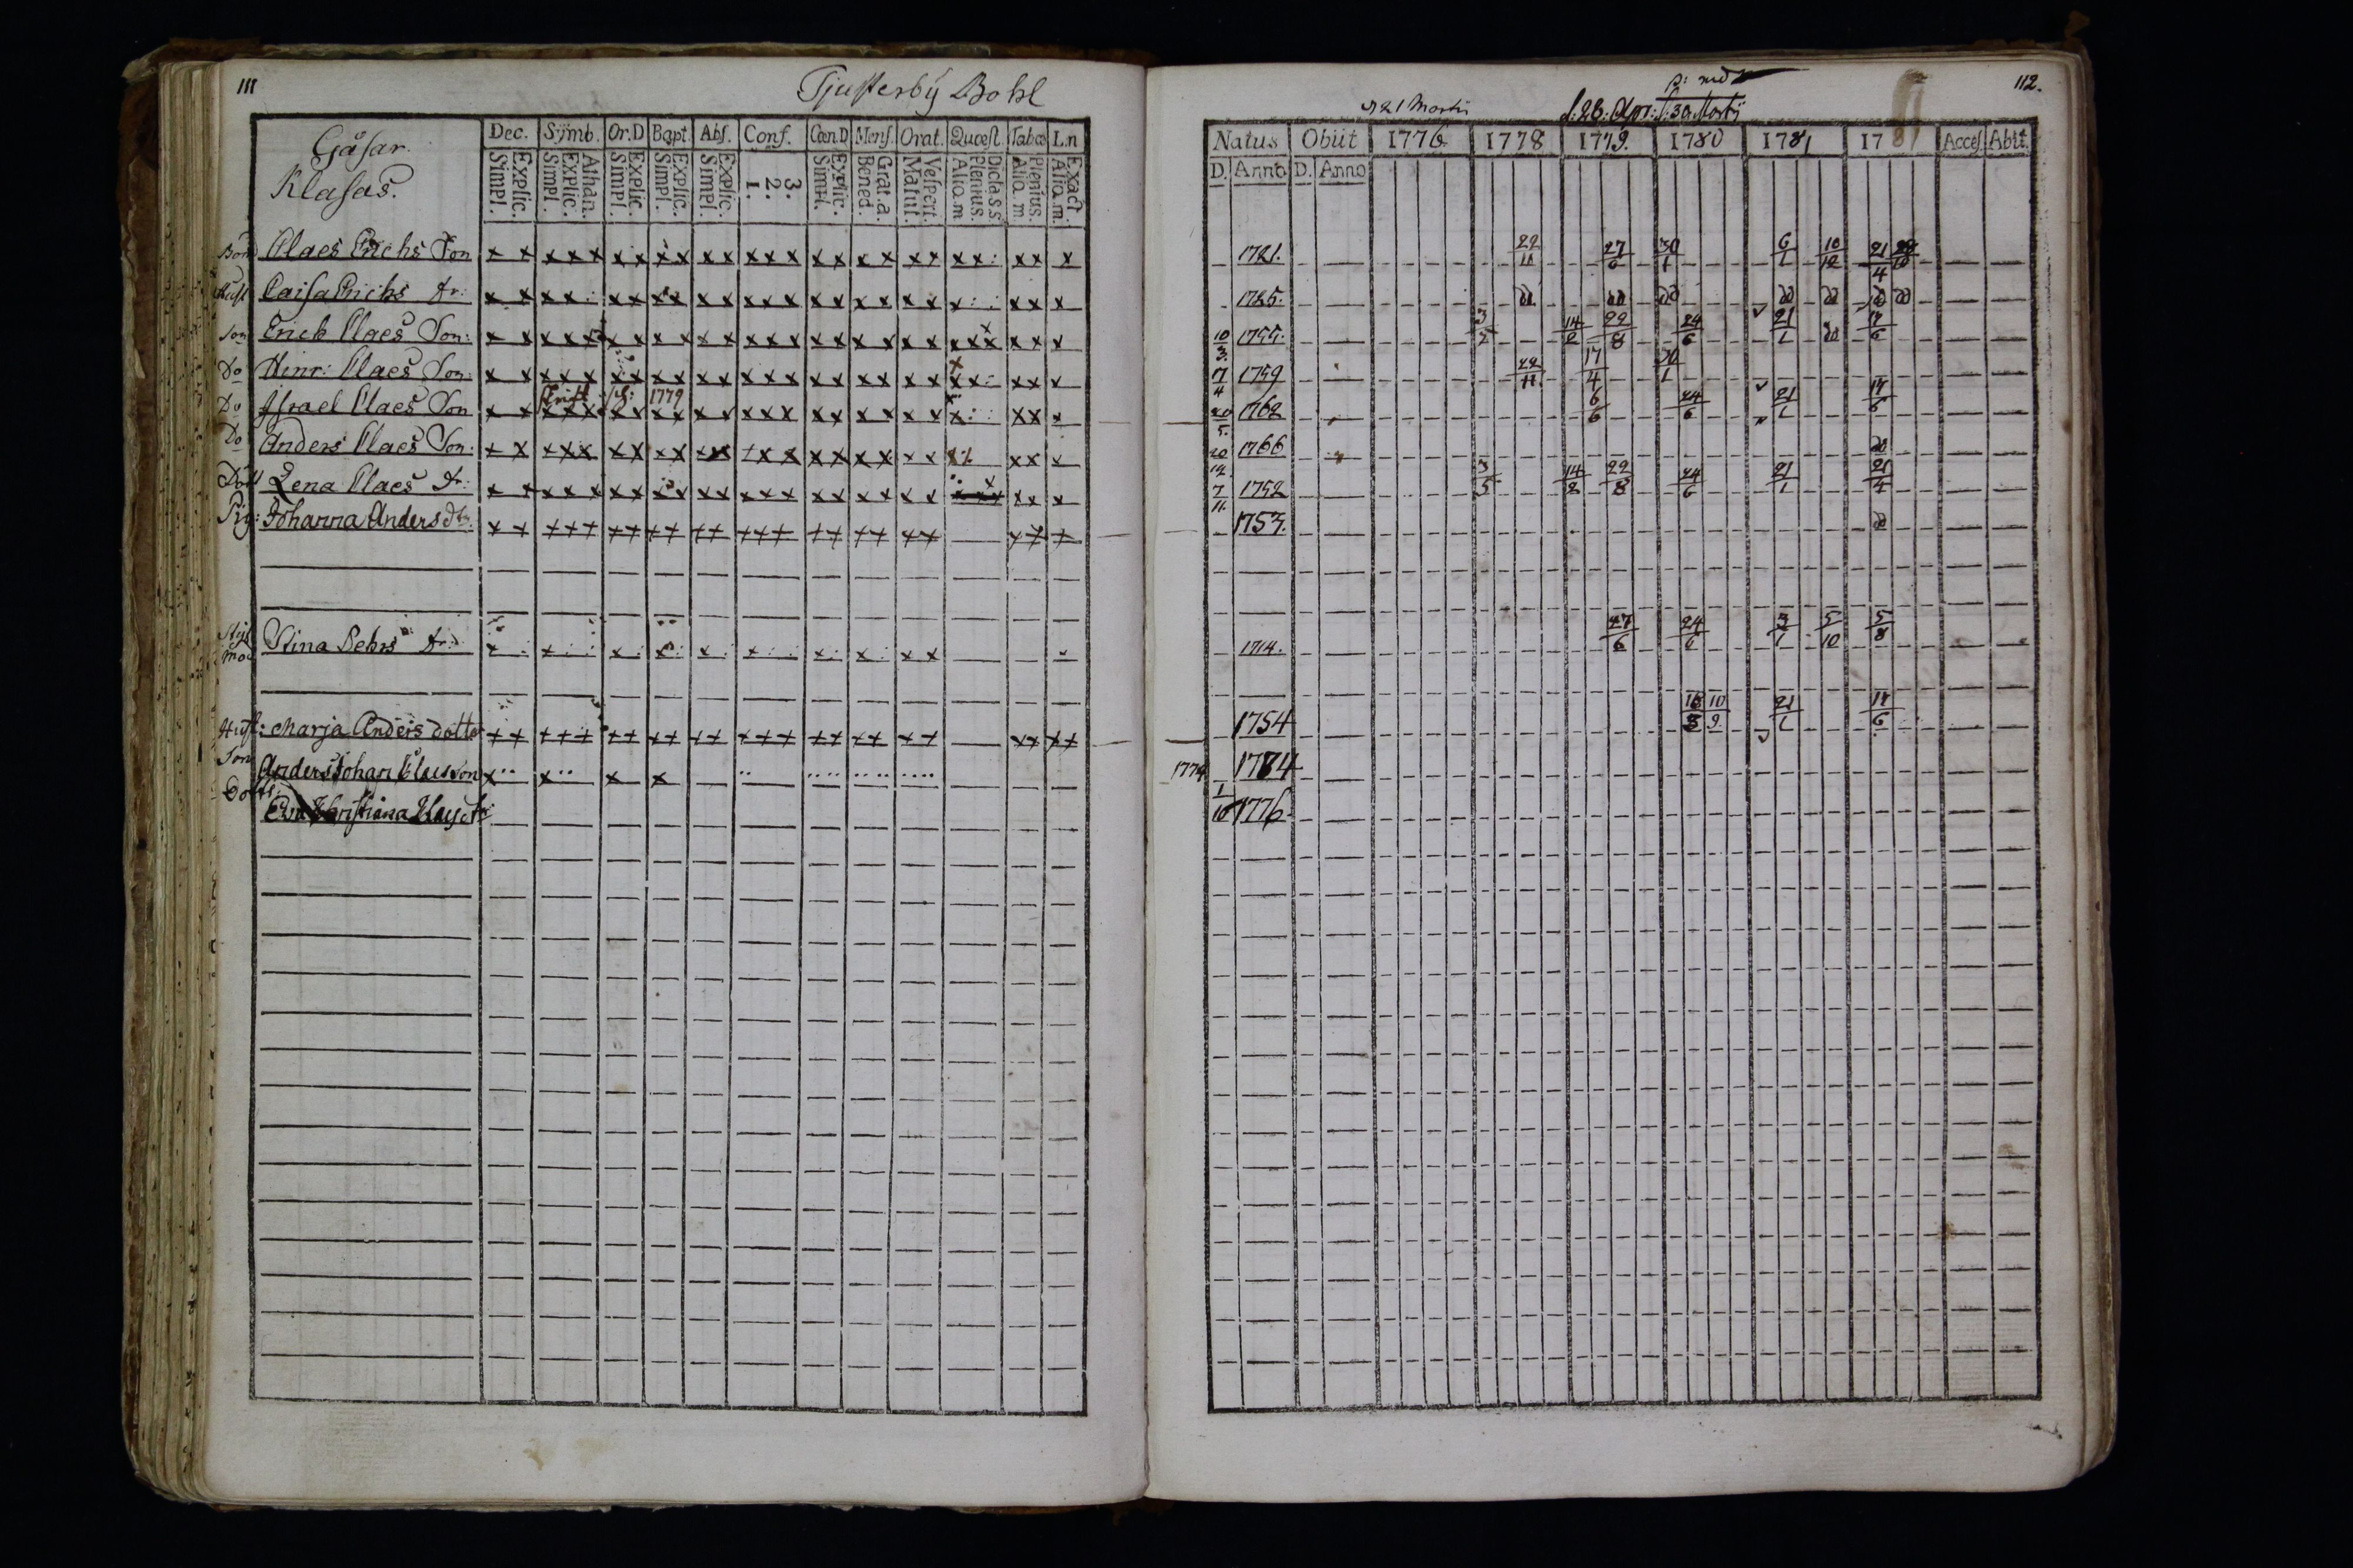 111
Tjusterbÿ Bohl
Gåsar.
Klasas.
Dec. Sÿmb. Or.D Bapt. Abs. Conf. Cœn.D Mens. Orat. Quæst. Tabœ L.n
Simpl. Explic. Simpl. Explic. Athan. Simpl. Explic. Simpl. Explic. Simpl. Explic. 1. 2. 3. Simpl. Explic. Bened. Grat.a. Matut. Vespert. Aliq.m Plenius. Dicta s.s Aliq.m Plenius. Aliq.m. Exact.
Bond Claes Erichs Son
Hust Caisa Erichs dr:
Son Erich Claes Son:
Do Hinr: Claes Son:
Do Israel Claes Son
1779
Do Anders Claes Son:
Dott Lena Claes dr:
Pig: Johanna Anders dr.
Stina Pehrs dr:
Hust: Marja Anders dotter
Son Anders Johan Claesson
Dotts: Eva Christiana Claesdr
112.
d 21 Martii
d. 28. Apr: d. 30 Martii
Natus Obiit 1776 1778 1779. 1780 1781 1781 Acces. Abit.
D. Anno D. Anno
1721. 22/11 27/6 30/1 6/1 10/12 21/4
1725. do do do do do do do
10/3. 1755. 3/5 14/2 22/8 24/6 21/1 do 17/6
7/4 1759 22/11 17/4 30/1
20/5. 1762 6/6 24/6 21/1 17/6
20/12 1766 do
7/11. 1752 3/5 14/2 22/8 24/6 21/1 21/4
1753. do
1714. 27/6 24/6 7/1 5/10 5/8
1754 18/3 10/9 21/1 17/6
1774 1784
1/10 1776